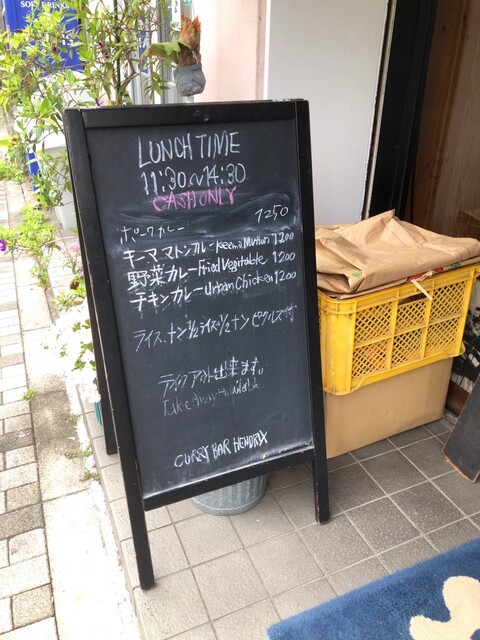 LUNCH TIME
11:30~14:30
CASH ONLY
ポークカレー 1250
キーママトンカレー Keema Mutton 1200
野菜カレー Fried Vegitable 1200
チキンカレー Urban Chicken 1200
ライス、ナン 1/2ライス&1/2ナン ピクルス付
テイクアウト出来ます。
Take Away Available
CURRY BAR HENDRIX